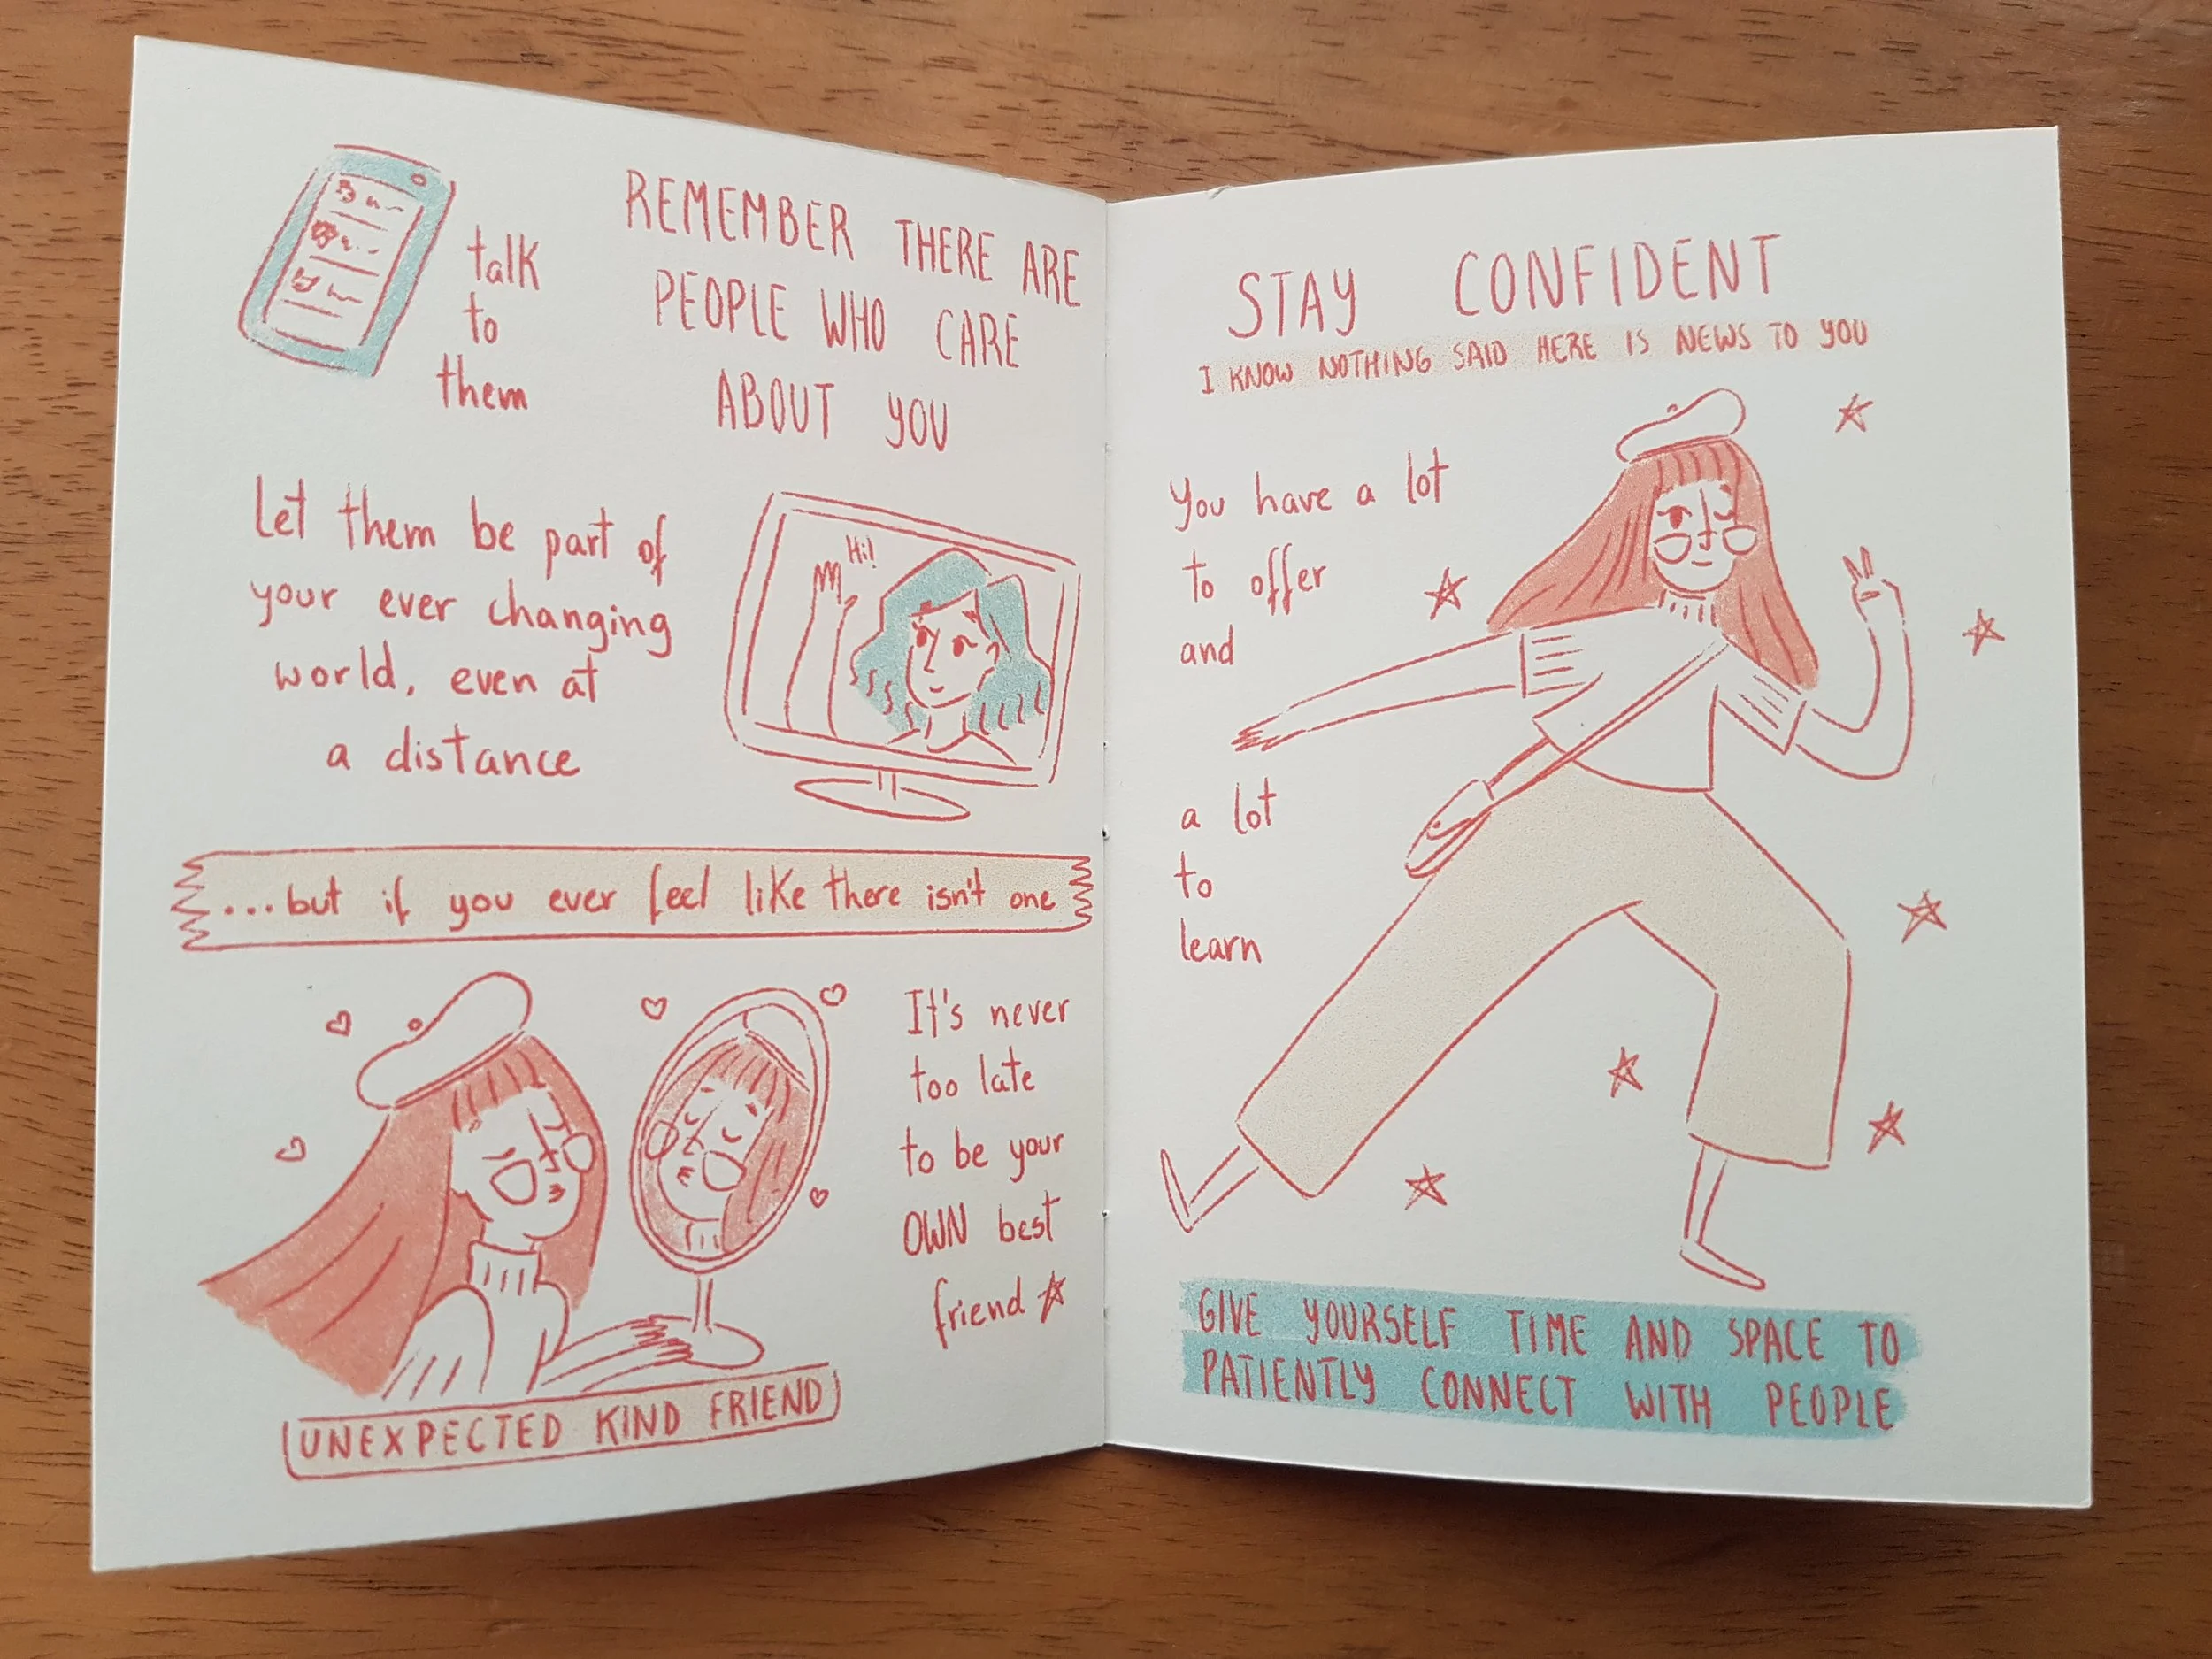 REMEMBER THERE ARE
PEOPLE WHO CARE
ABOUT YOU
talk
to
them
Let them be part of
your ever changing
world, even at
a distance
Hi!
...but if you ever feel like there isn't one
It's never
too late
to be your
OWN best
friend
UNEXPECTED KIND FRIEND
STAY CONFIDENT
I KNOW NOTHING SAID HERE IS NEWS TO YOU
You have a lot
to offer
and
a lot
to
learn
GIVE YOURSELF TIME AND SPACE TO
PATIENTLY CONNECT WITH PEOPLE